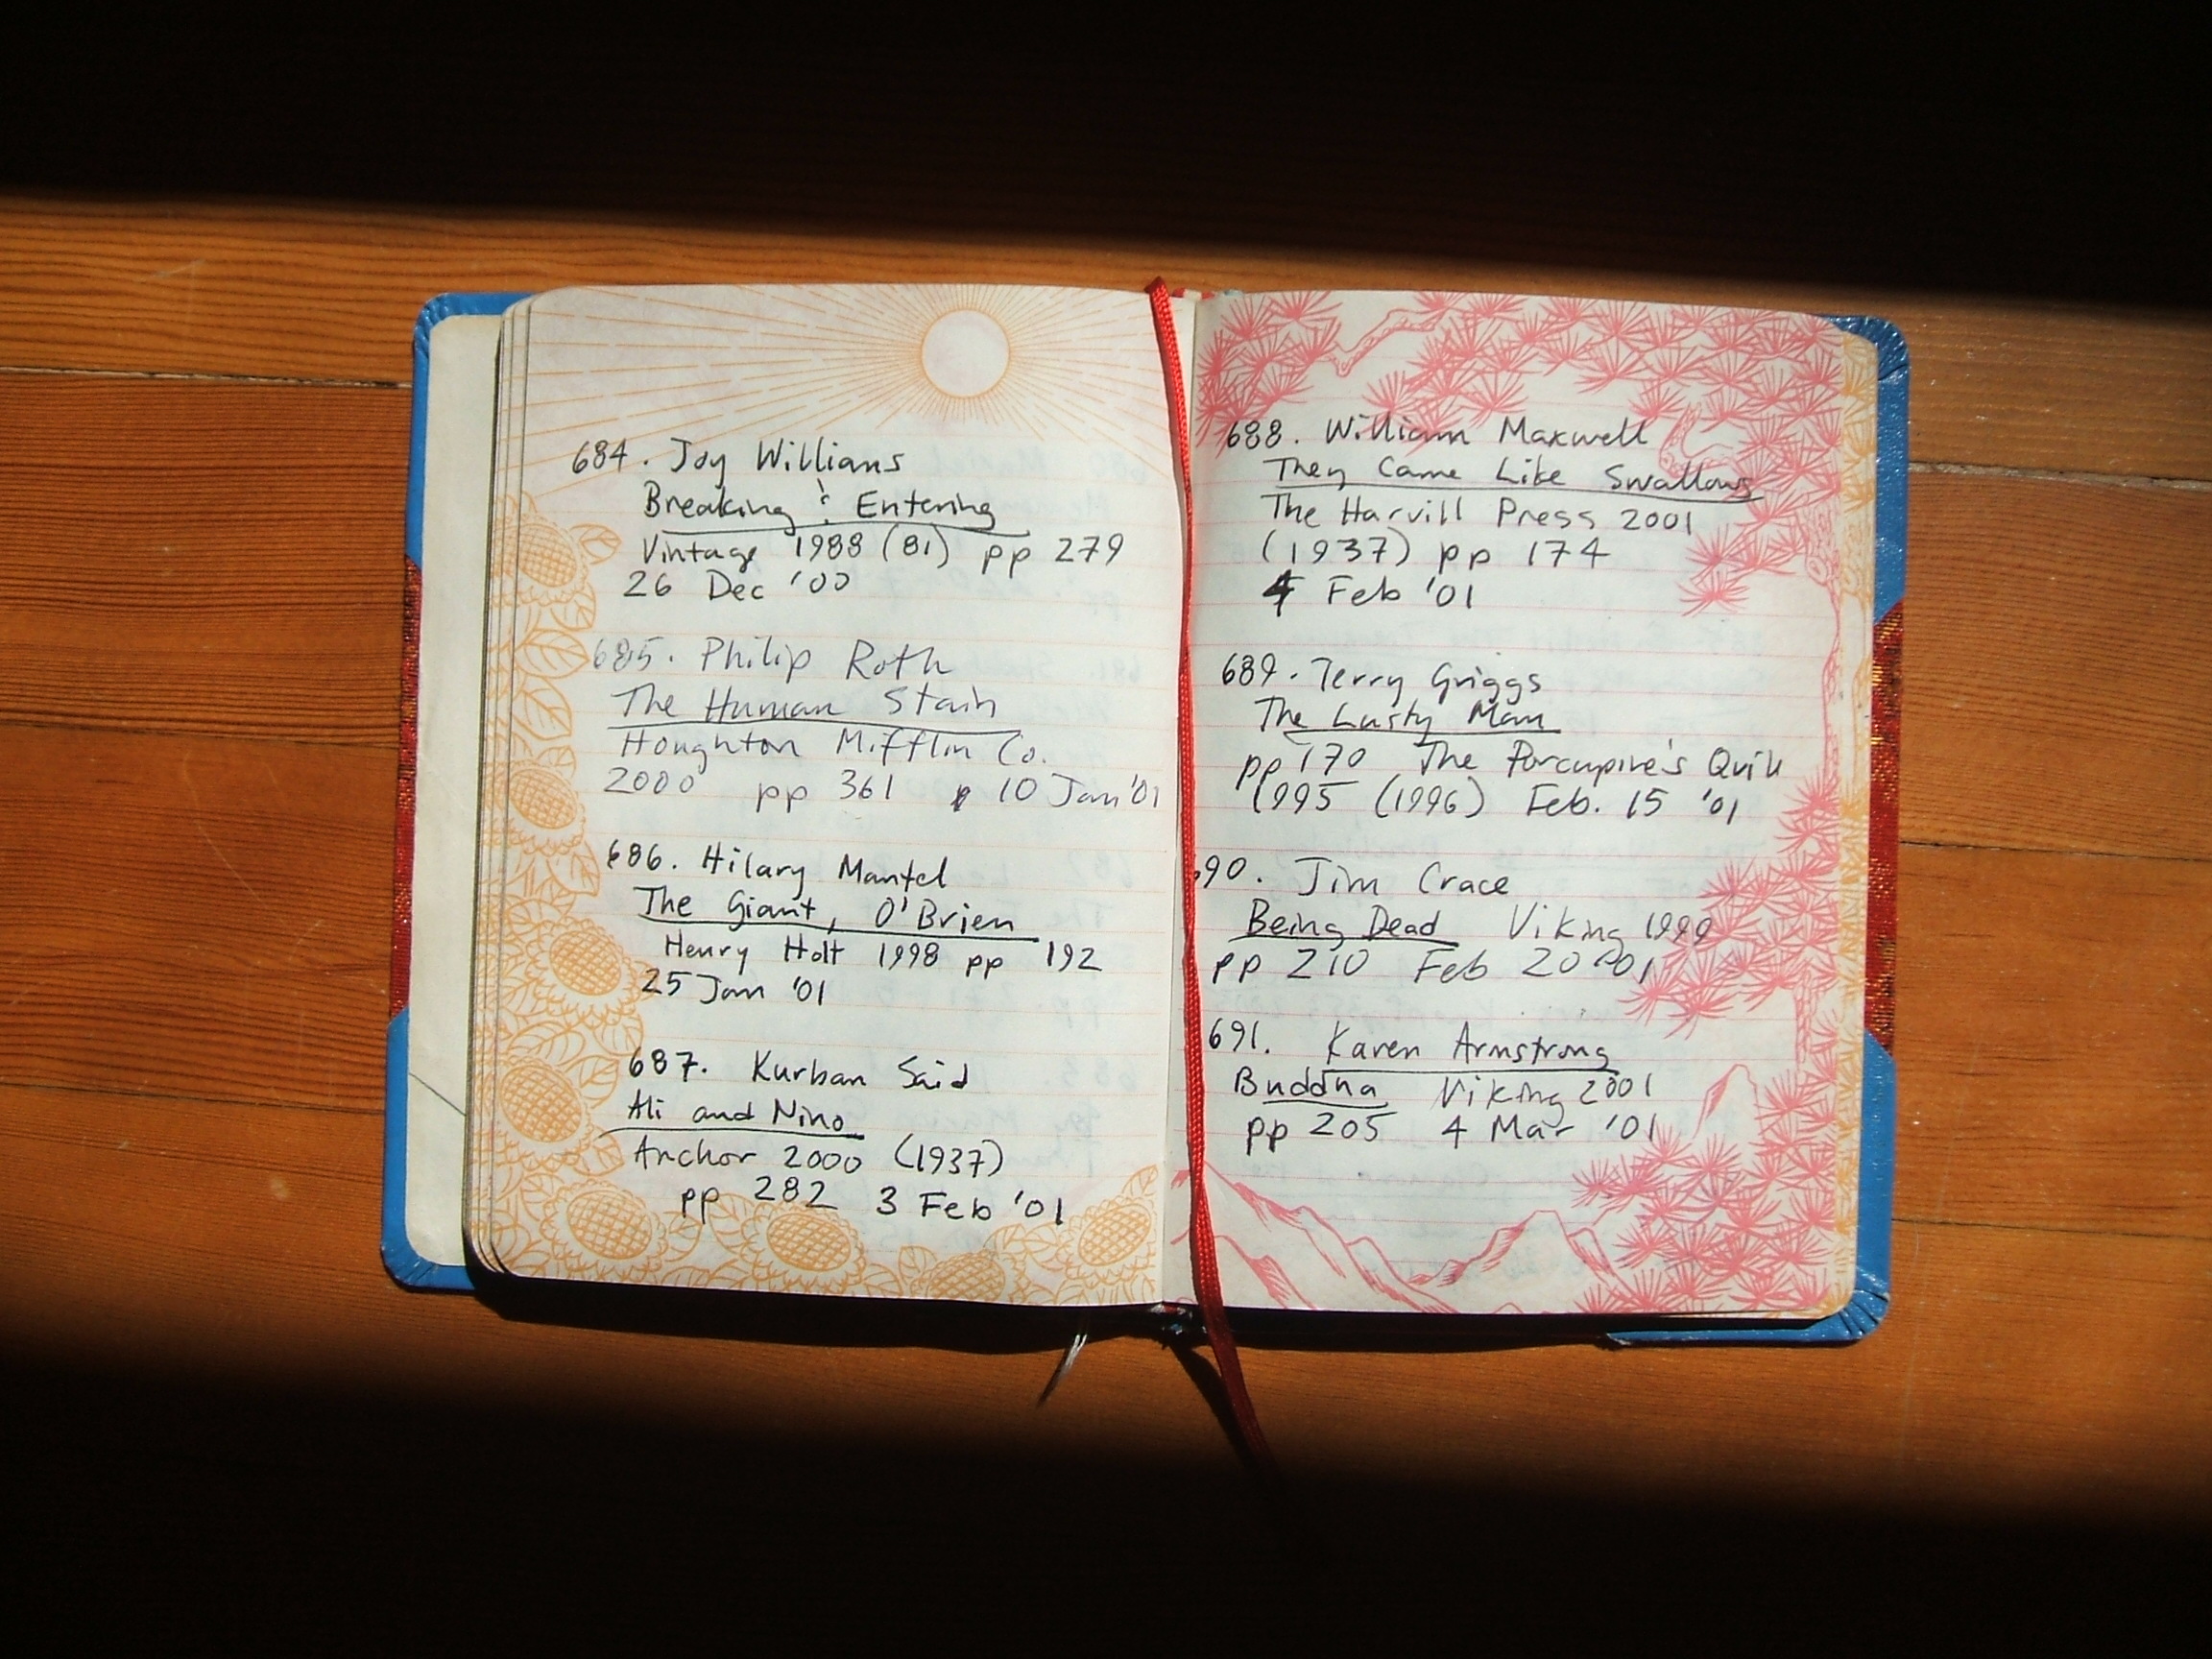 684. Joy Willians
Breaking & Entering
Vintage 1988 (81) pp 279
26 Dec '00
685. Philip Roth
The Human Stain
Houghton Mifflin Co.
2000 pp 361 10 Jan '01
686. Hilary Mantel
The Giant, O'Brien
Henry Holt 1998 pp 192
25 Jan '01
687. Kurban Said
Ali and Nino
Anchor 2000 (1937)
pp 282 3 Feb '01
688. William Maxwell
They Came Like Swallows
The Harvill Press 2001
(1937) pp 174
4 Feb '01
689. Terry Griggs
The Lusty Man
pp 170 The Porcupine's Quill
1995 (1996) Feb. 15 '01
690. Jim Crace
Being Dead Viking 1999
pp 210 Feb 20 '01
691. Karen Armstrong
Buddha Viking 2001
pp 205 4 Mar '01